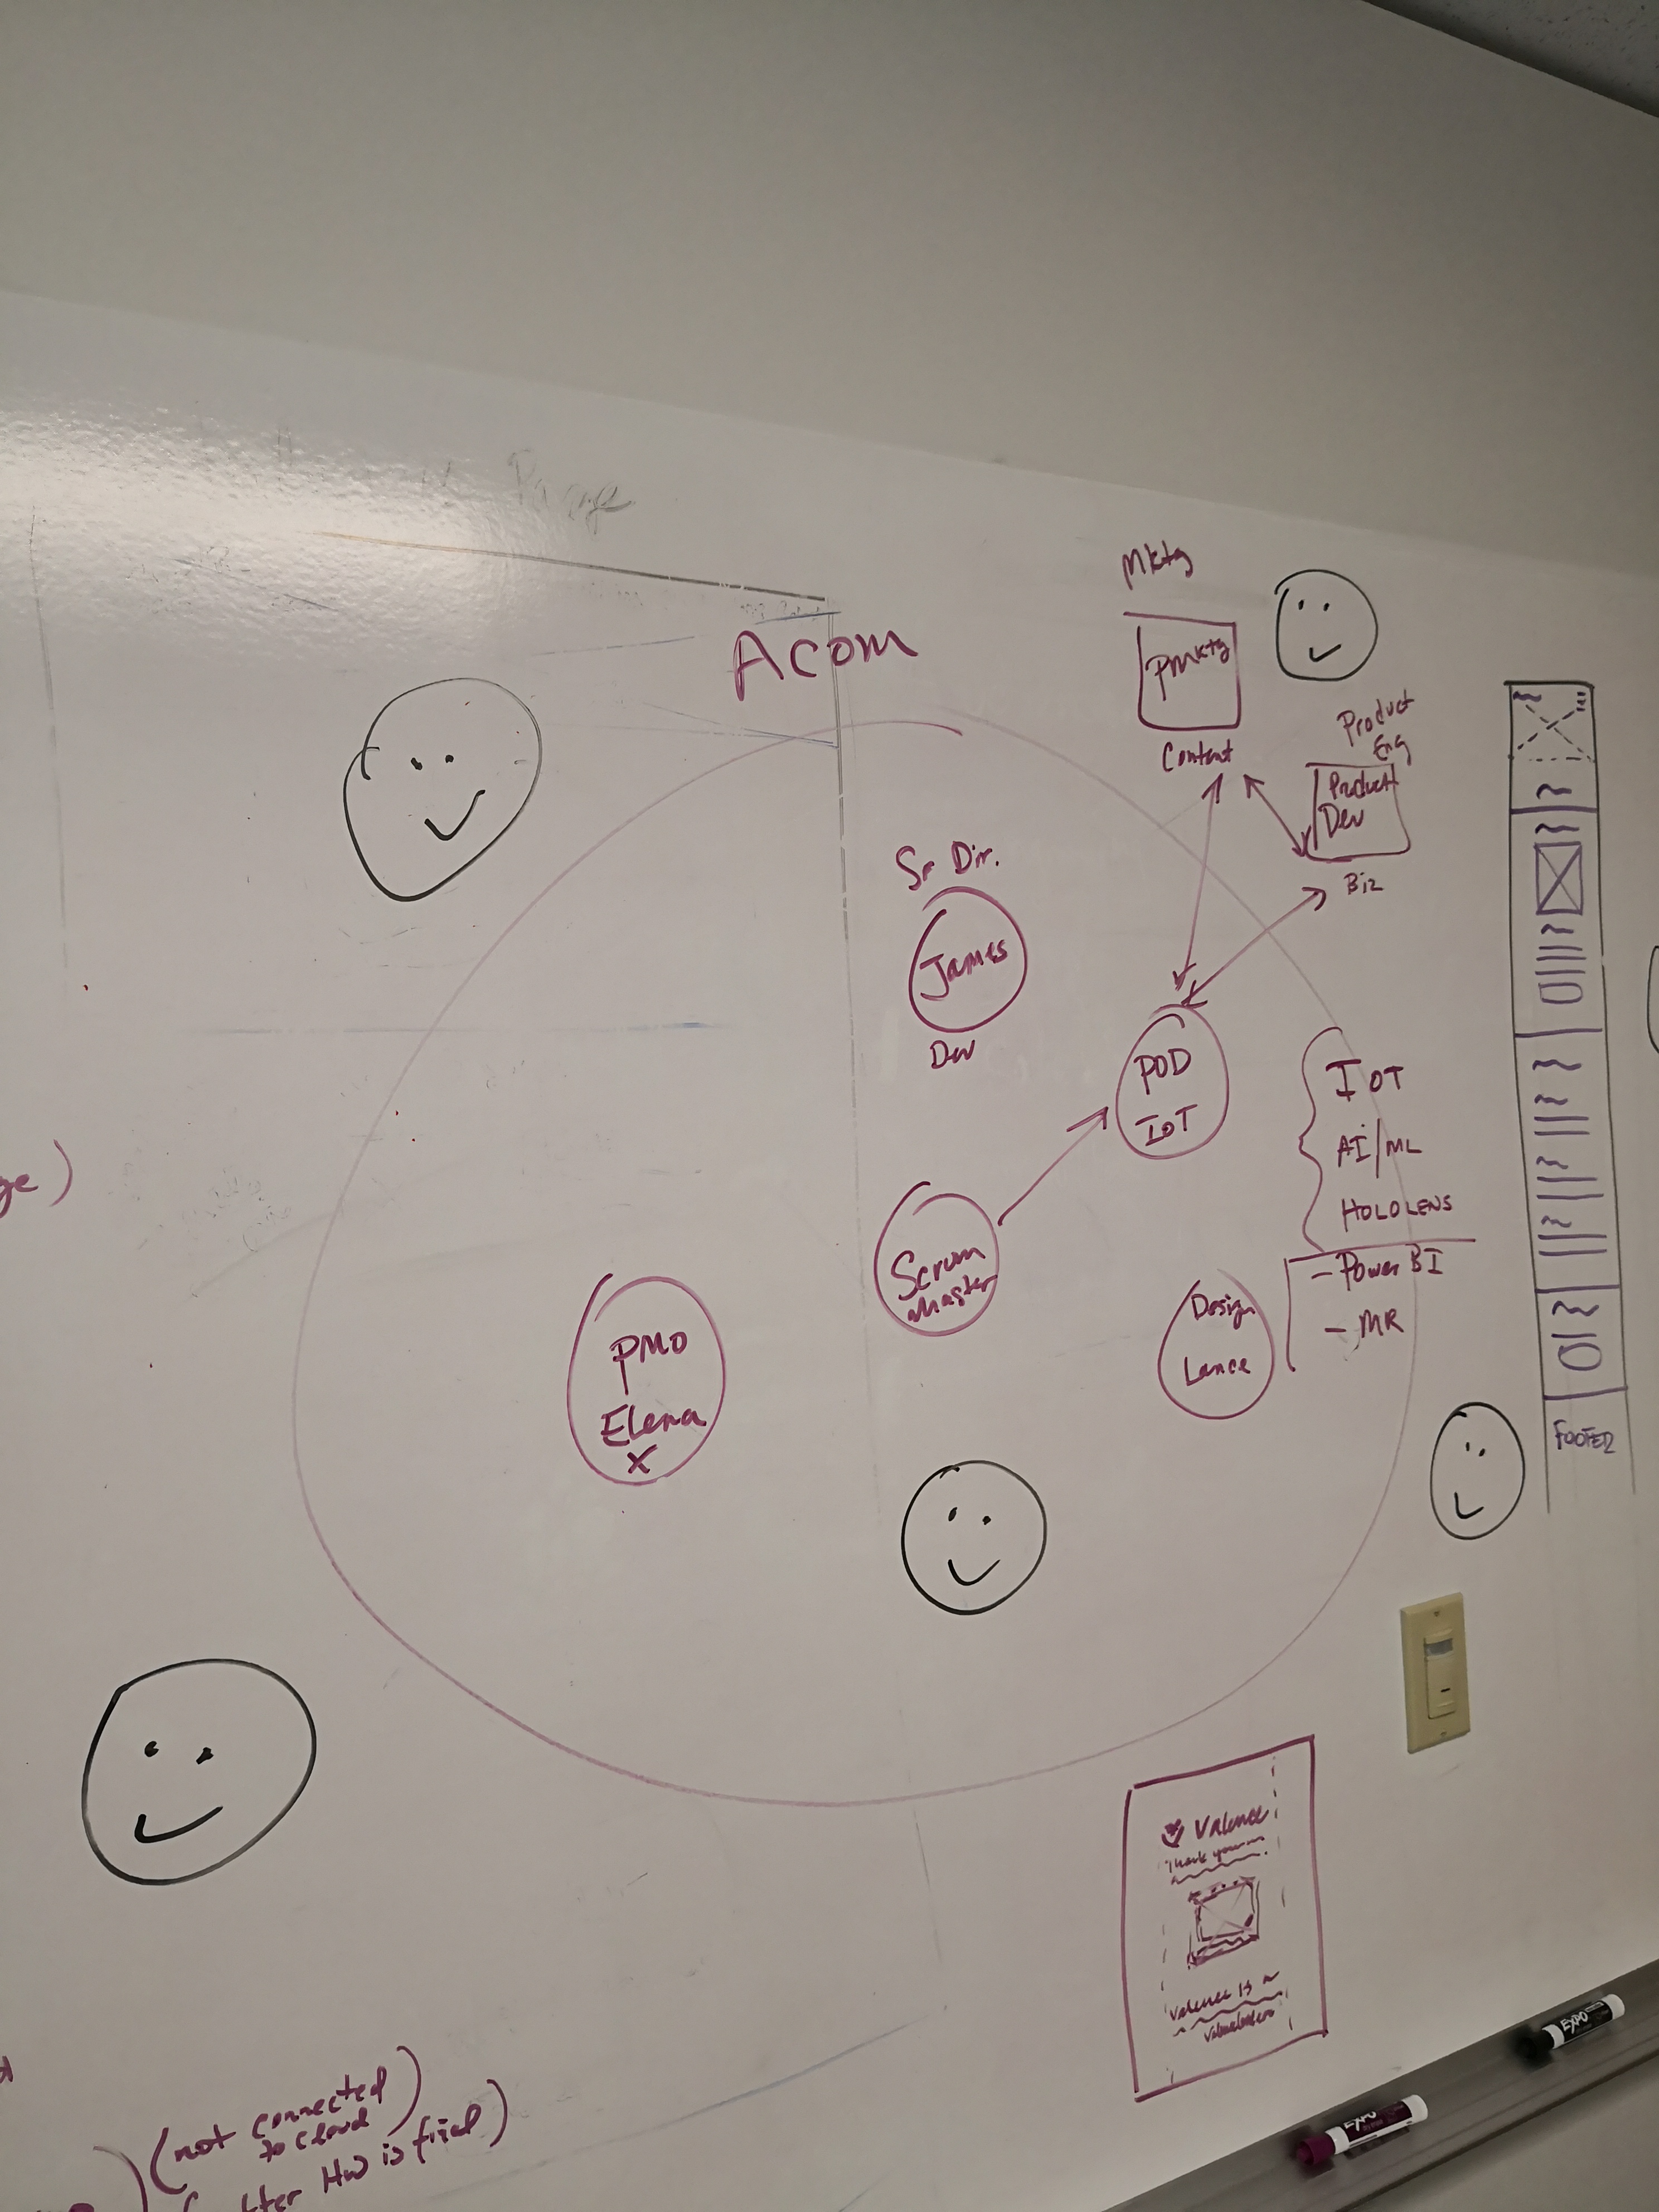 Page
Acom
Mktg
PMktg
Content
Product
Eng
Product
Dev
Biz
Sr Dir.
James
Dev
POD
IoT
IOT
AI/ML
HOLOLENS
- Power BI
- MR
Scrum
Master
Design
Lance
PMO
Elena
X
FOOTER
Valence
Thank you
Valence is a
ge)
(not connected
to cloud)
HW is
EXPO
EXPO